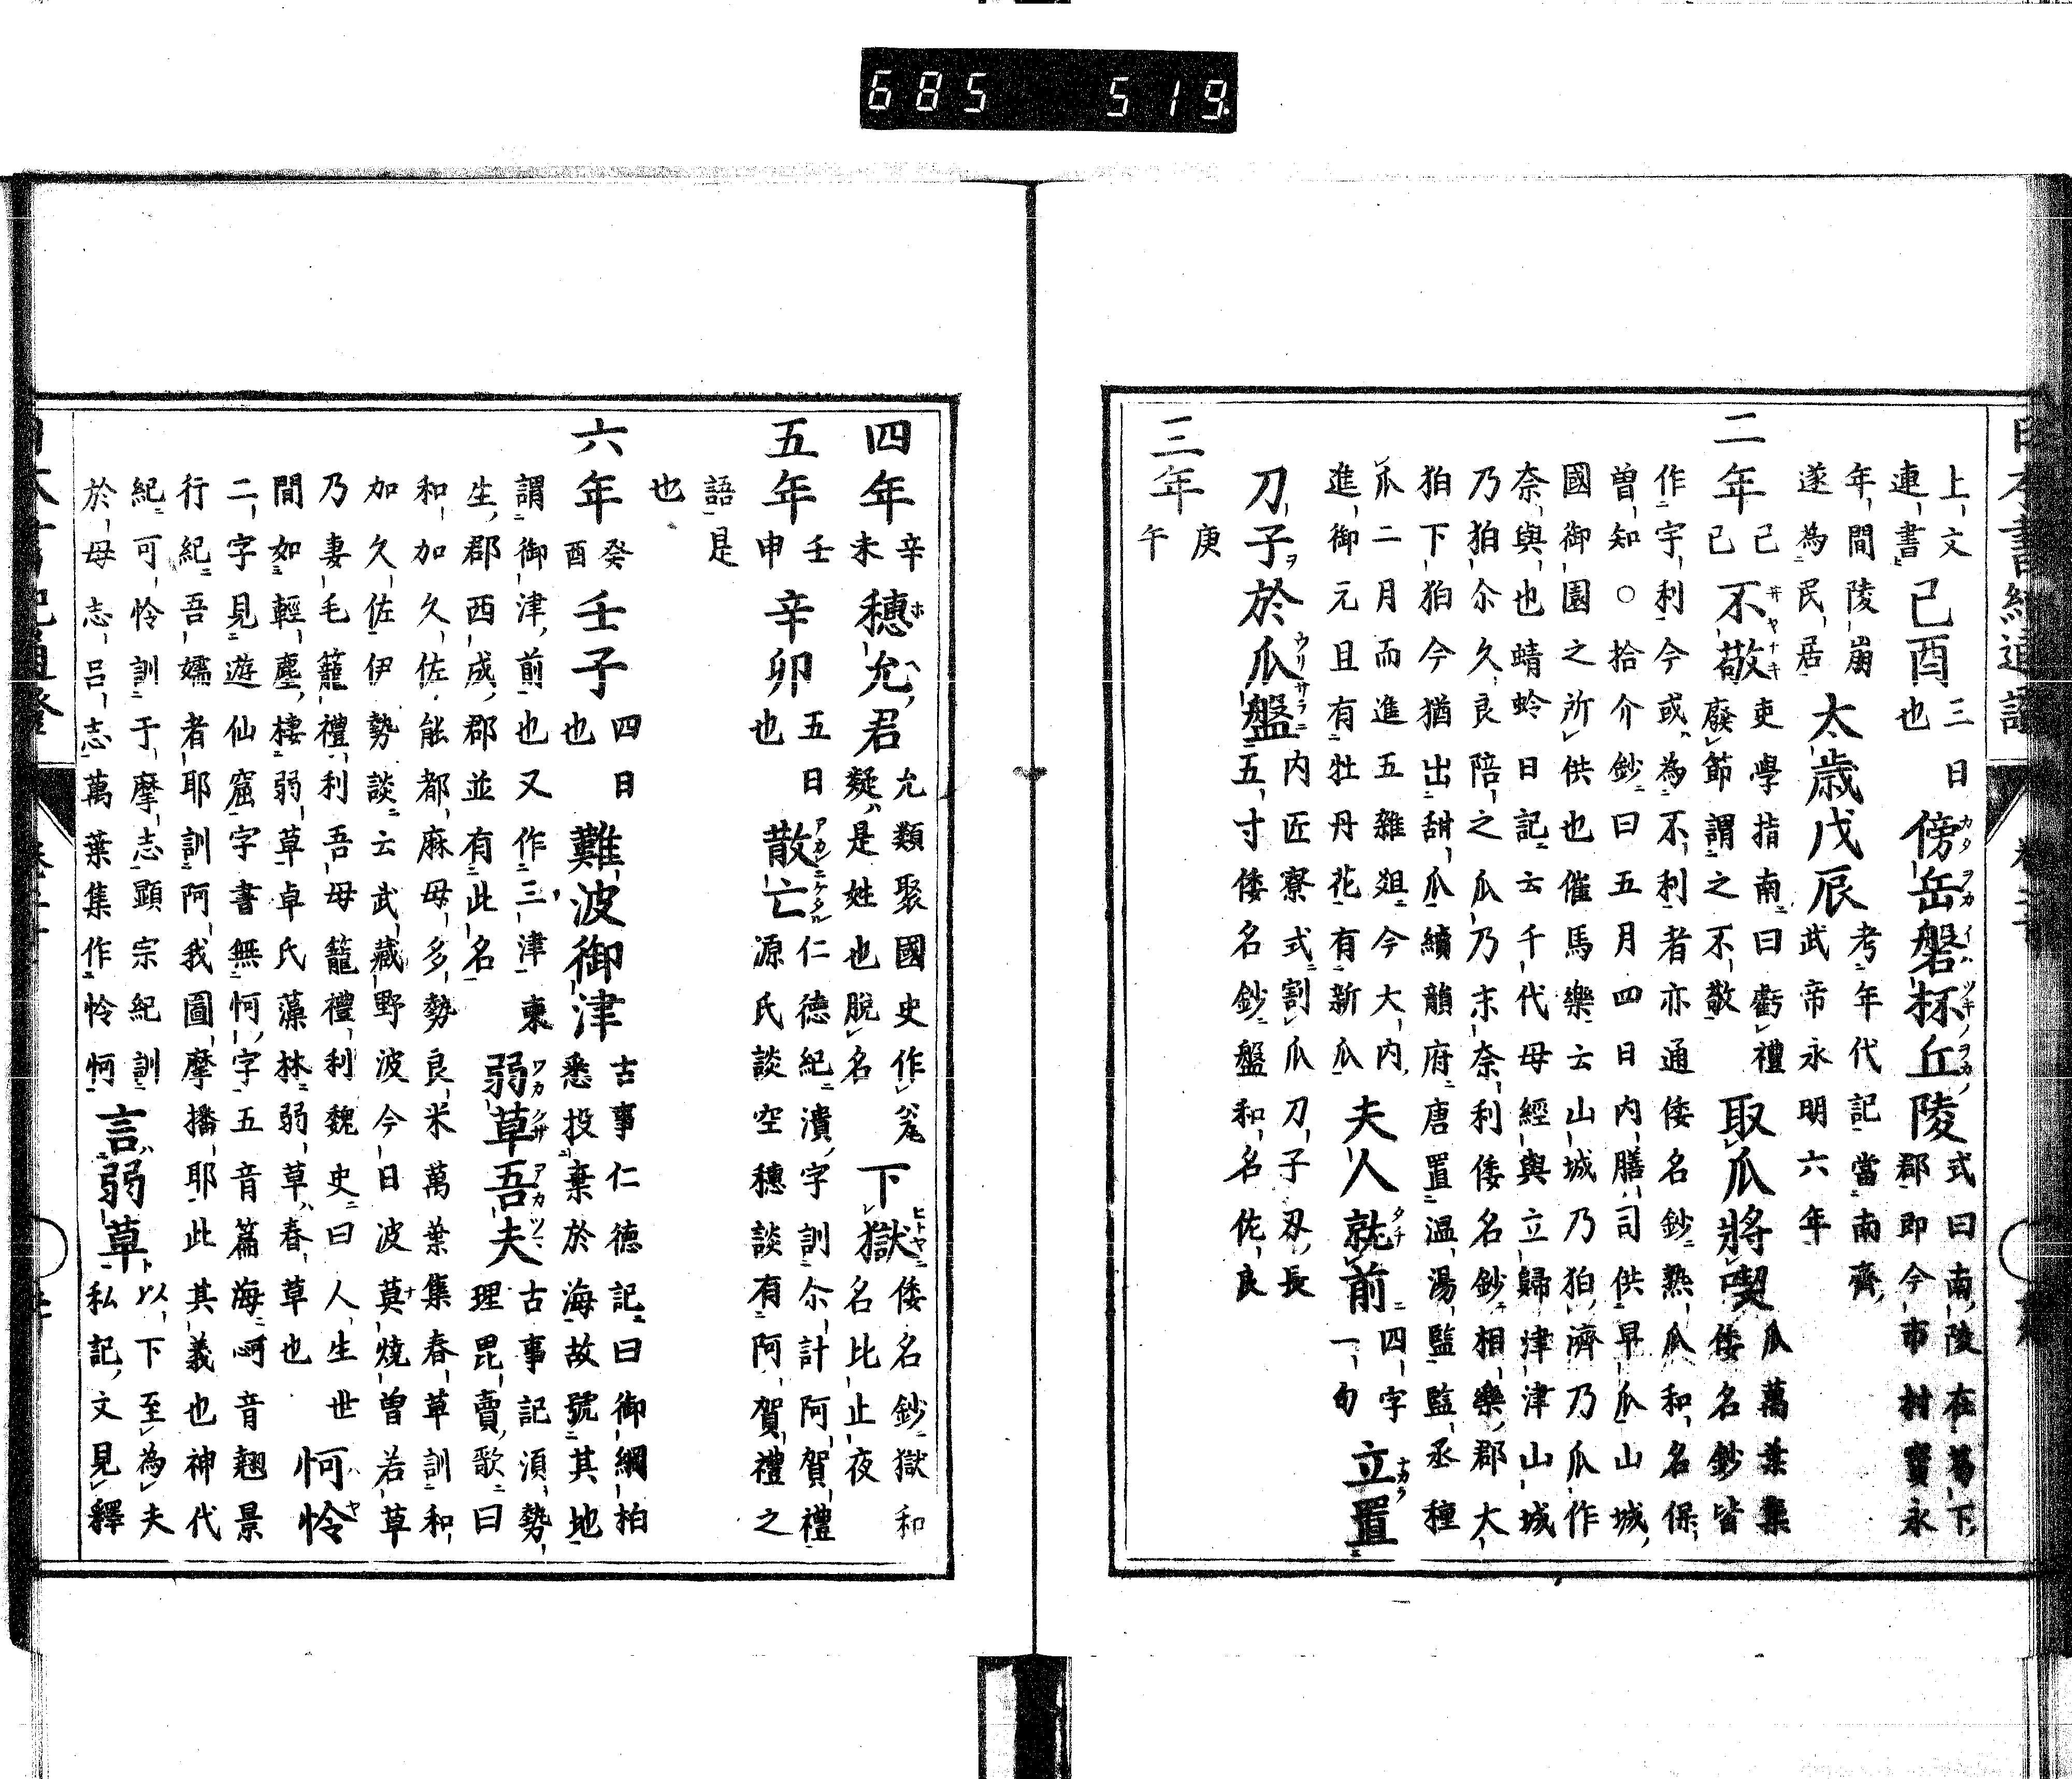 685 519
上文
連書己酉三日
也傍岳磐杯丘陵式曰南陵在葛下
郡即今市村寳永
年間陵崩
遂為民居太歳戊辰考年代記當南齊
武帝永明六年
二年己
巳不敬吏學指南曰虧禮
廢節謂之不敬取瓜將喫瓜萬葉集
倭名鈔皆
作宇利今或為不利者亦通倭名鈔熟瓜和名保
曽知○拾介鈔曰五月四日内膳司供早瓜山城
國御園之所供也催馬樂云山城乃狛濟乃瓜作
奈與也蜻蛉日記云千代母經與立歸津津山城
乃狛尒久良陪之瓜乃末奈利倭名鈔相樂郡大
狛下狛今猶出甜瓜續韻府唐置温湯監監丞種
瓜二月而進五雜俎今大内
進御元旦有牡丹花有新瓜夫人就前四字
一句立置
刀子於瓜盤内匠寮式割瓜刀子刄長
五寸倭名鈔盤和名佐良
三年庚
午
四年辛
未穗允君允類聚國史作瓮
疑是姓也脱名下獄倭名鈔獄和
名比止夜
五年壬
申辛卯五日
也散亡仁徳紀潰字訓尒計阿賀禮
源氏談空穗談有阿賀禮之
語是
也
六年癸
酉壬子四日
也難波御津古事仁徳記曰御綱柏
悉投棄於海故號其地
謂御津前也又作三津東
生郡西成郡並有此名弱草吾夫古事記湏勢
理毘賣歌曰
和加久佐能都麻母多勢良米萬葉集春草訓和
加久佐伊勢談云武藏野波今日波莫燒曽若草
乃妻毛籠禮利吾母籠禮利魏史曰人生世
間如輕塵棲弱草卓氏藻林弱草春草也怜
二字見遊仙窟字書無怜字五音篇海音翹景
行紀吾孀者耶訓阿我圖摩播耶此其義也神代
紀可怜訓于摩志顯宗紀訓
於母志呂志萬葉集作怜言弱草以下至為夫
私記文見釋